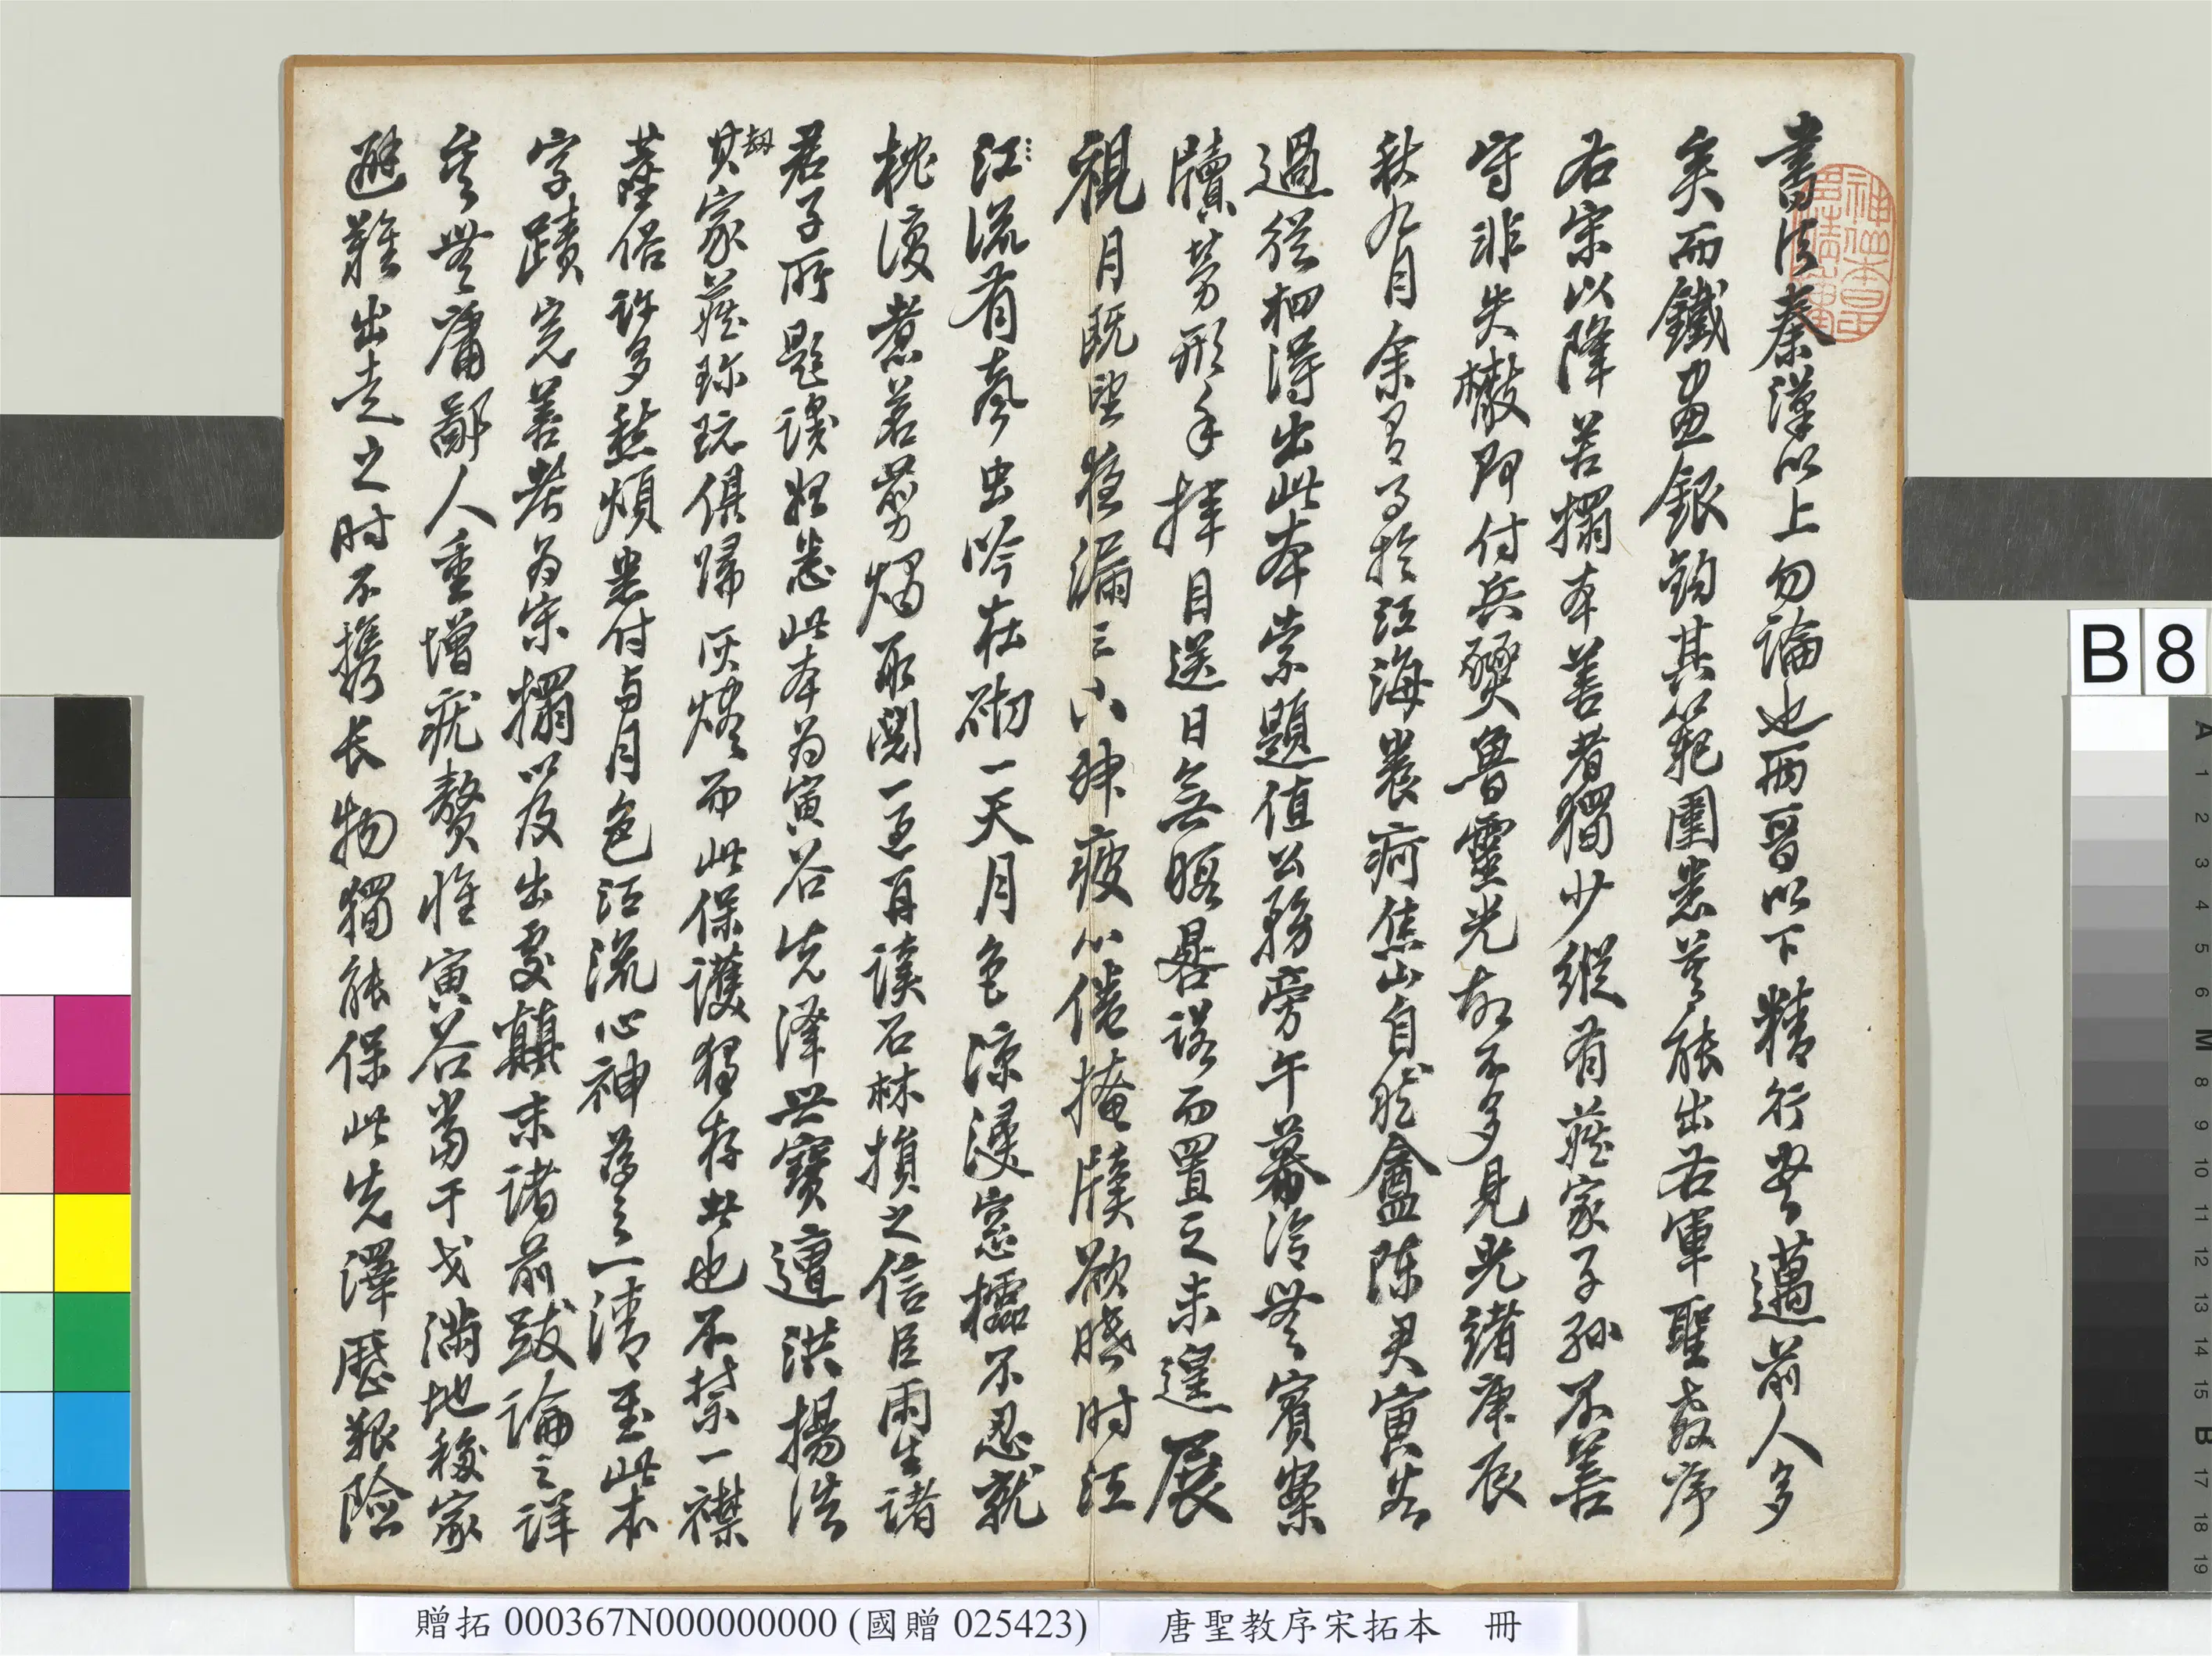 書法秦漢以上勿論也兩晉以下精行無邁前人多
矣而鐵畫銀鉤其範圍悉莫能出右軍聖教序
右宋以降善搨本善者獨少縱有藏家子孫不善
守非失檢即付兵燹魯靈光故不多見光緒庚辰
秋九月余有事於江海裝荷焦山自然盦陳君寅谷
過從相得出此本索題值公務旁午幕冷無賓案
牘勞形手揮目送日無暇晷諾而置之未遑展
視月既望夜漏三下神疲心倦掩牘欲睡時江
江流有聲虫吟在砌一天月色涼浸窗櫺不忍就
枕復煮茗剪燭取閱一過再讀石林損之信臣雨生諸
君子所題識始悉此本為寅谷先澤世寶遭洪楊浩
劫
其家藏珍玩俱歸灰燼而此保護獨存出也不禁一襟
塵俗許多愁煩悉付与月色江流心神為之一清至此本
字蹟完善紫為宋搨以及出處顛末諸前跋論之詳
矣無庸鄙人重增疣贅惟寅谷當干戈滿地移家
避難出走之时不攜长物獨能保此先澤歷艱險
贈拓 000367N000000000 (國贈 025423)
唐聖教序宋拓本 冊
B 8
A 1 2 3 4 5 6 M 8 9 10 11 12 13 14 15 B 17 18 19